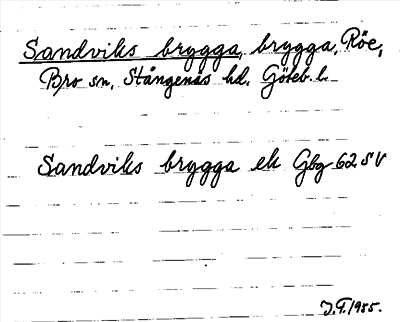 Sandviks brygga, brygga, Röe,
Bro sn, Stångenäs hd. Göteb. l.
Sandviks brygga ek Gbg 62 SV
J.T. 1955.